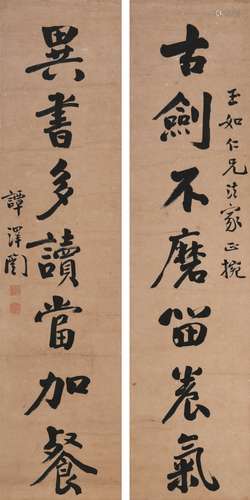 古劍不磨畱養氣
玉如仁兄法家正
異書多讀當加餐
譚澤闓